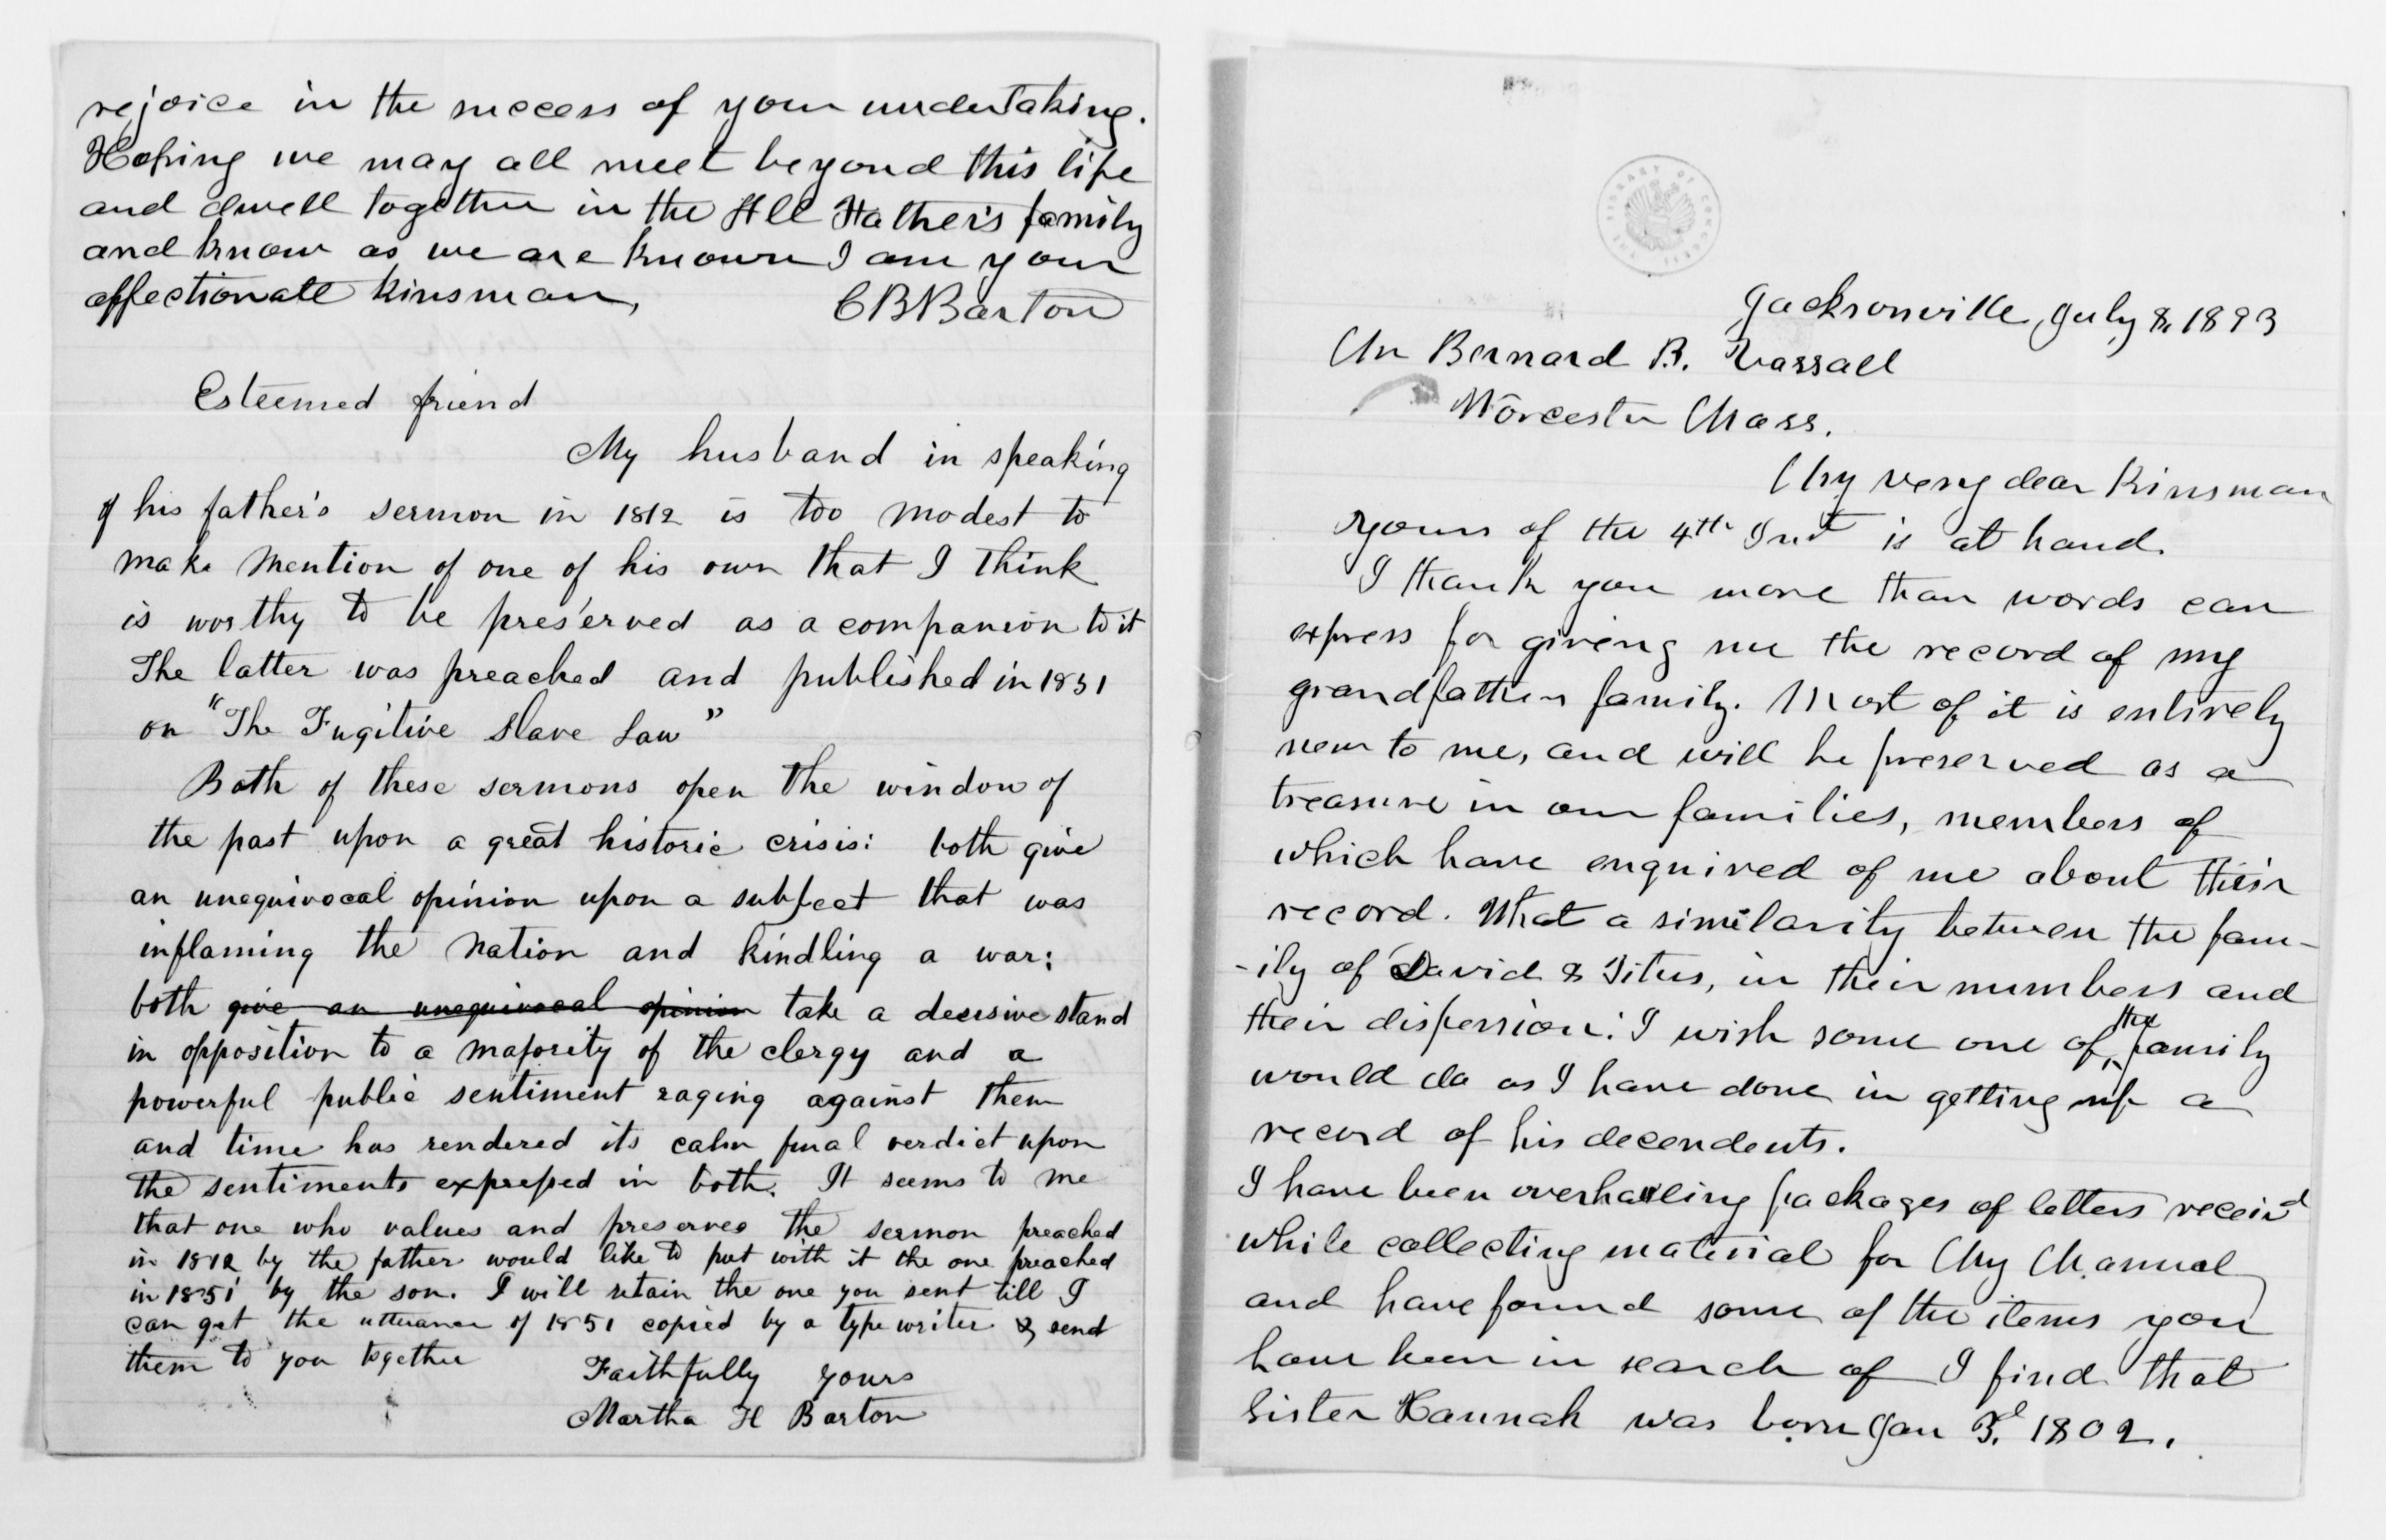 rejoice in the success of your undertaking.
Hoping we may all meet beyond this life
and dwell together in the All Father's family
and know as we are known I am your
affectionate kinsman,
C B Barton
Esteemed friend
My husband in speaking
of his father's sermon in 1812 is too modest to
make mention of one of his own that I think
is worthy to be preserved as a companion to it
The latter was preached and published in 1851
on "The Fugitive Slave Law"
Both of these sermons open the window of
the past upon a great historic crisis: both give
an unequivocal opinion upon a subject that was
inflaming the nation and kindling a war:
both give an unequivocal opinion take a decisive stand
in opposition to a majority of the clergy and a
powerful public sentiment raging against them
and time has rendered its calm final verdict upon
the sentiments expressed in both. It seems to me
that one who values and preserves the sermon preached
in 1812 by the father would like to put with it the one preached
in 1851 by the son. I will retain the one you sent till I
can get the utterance of 1851 copied by a type writer & send
them to you together
Faithfully yours
Martha H Barton
LIBRARY OF CONGRESS
Jacksonville, July 8, 1893
Mr Bernard B. Vassall
Worcester Mass.
My very dear Kinsman
Yours of the 4th Inst is at hand.
I thank you more than words can
express for giving me the record of my
grandfathers family. Most of it is entirely
new to me, and will be preserved as a
treasure in our families, members of
which have enquired of me about their
record. What a similarity between the fam-
-ily of David & Titus, in their numbers and
their dispersion! I wish some one of the family
would do as I have done in getting up a
record of his decendents.
I have been overhauling packages of letters receivd
while collecting material for My Manual
and have found some of the items you
have been in search of I find that
Sister Hannah was born Jan 3d. 1802.